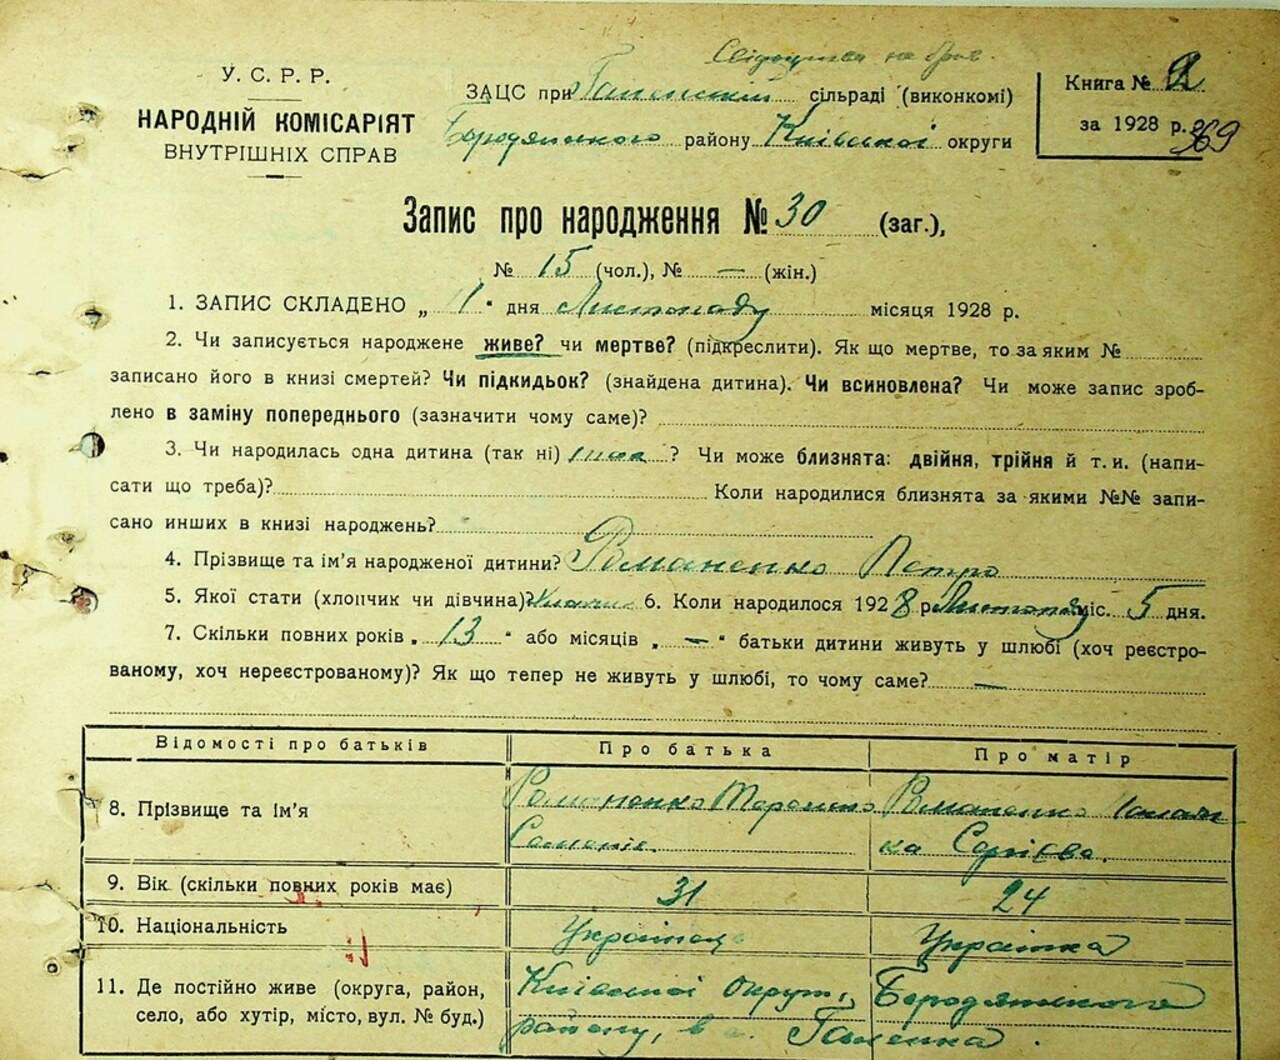 на
У. С. Р. Р.
НАРОДНІЙ КОМІСАРІЯТ
ВНУТРІШНІХ СПРАВ
ЗАЦС при сільраді (виконкомі)
Бородянського району Київської округи
Книга № 2
за 1928 р. 369
Запис про народження № 30 (заг.),
№ 15 (чол.), № — (жін.)
1. ЗАПИС СКЛАДЕНО „ 11 " дня Листопаду місяця 1928 р.
2. Чи записується народжене живе? чи мертве? (підкреслити). Як що мертве, то за яким №
записано його в книзі смертей? Чи підкидьок? (знайдена дитина). Чи всиновлена? Чи може запис зроб-
лено в заміну попереднього (зазначити чому саме)?
3. Чи народилась одна дитина (так ні) так ? Чи може близнята: двійня, трійня й т. и. (напи-
сати що треба)? Коли народилися близнята за якими №№ запи-
сано инших в книзі народжень?
4. Прізвище та ім'я народженої дитини? Романенко Петро
5. Якої статі (хлопчик чи дівчина)? 6. Коли народилося 1928 р. Листопаду міс. 5 дня.
7. Скільки повних років „ 13 " або місяців „ — " батьки дитини живуть у шлюбі (хоч реєстро-
ваному, хоч нереєстрованому)? Як що тепер не живуть у шлюбі, то чому саме? —
Відомості про батьків Про батька Про матір
8. Прізвище та ім'я Романенко Романенко
9. Вік (скільки повних років має) 31 24
10. Національність Українець Українка
11. Де постійно живе (округа, район,
село, або хутір, місто, вул. № буд.)
Київської округи, Бородянського
району, в с.